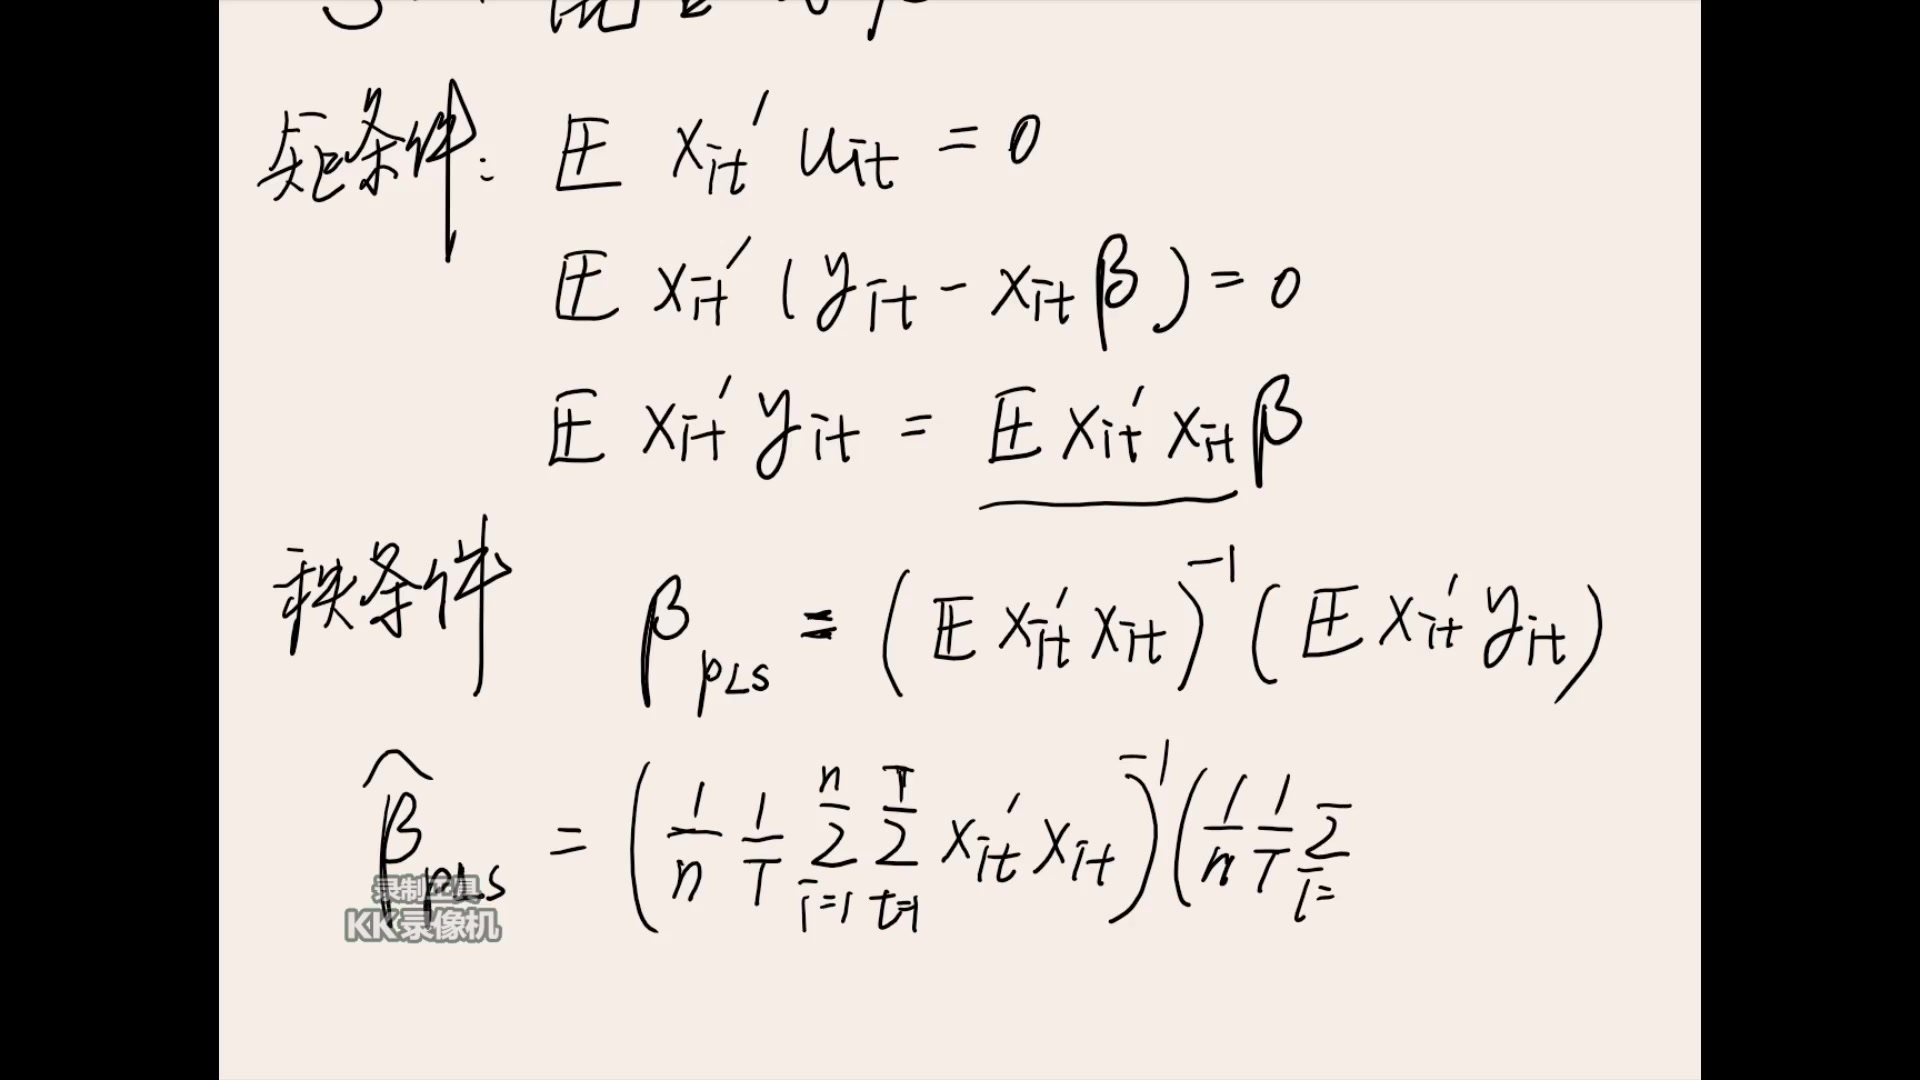 矩条件: E xit′ uit = 0
E xit′ (yit - xit β) = 0
E xit′ yit = E xit′ xit β
秩条件 βPLS = (E xit′ xit)⁻¹ (E xit′ yit)
β̂PLS = (1/n 1/T ∑ⁿi=1 ∑ᵀt=1 xit′ xit)⁻¹ (1/n 1/T ∑i=
录制工具
KK录像机